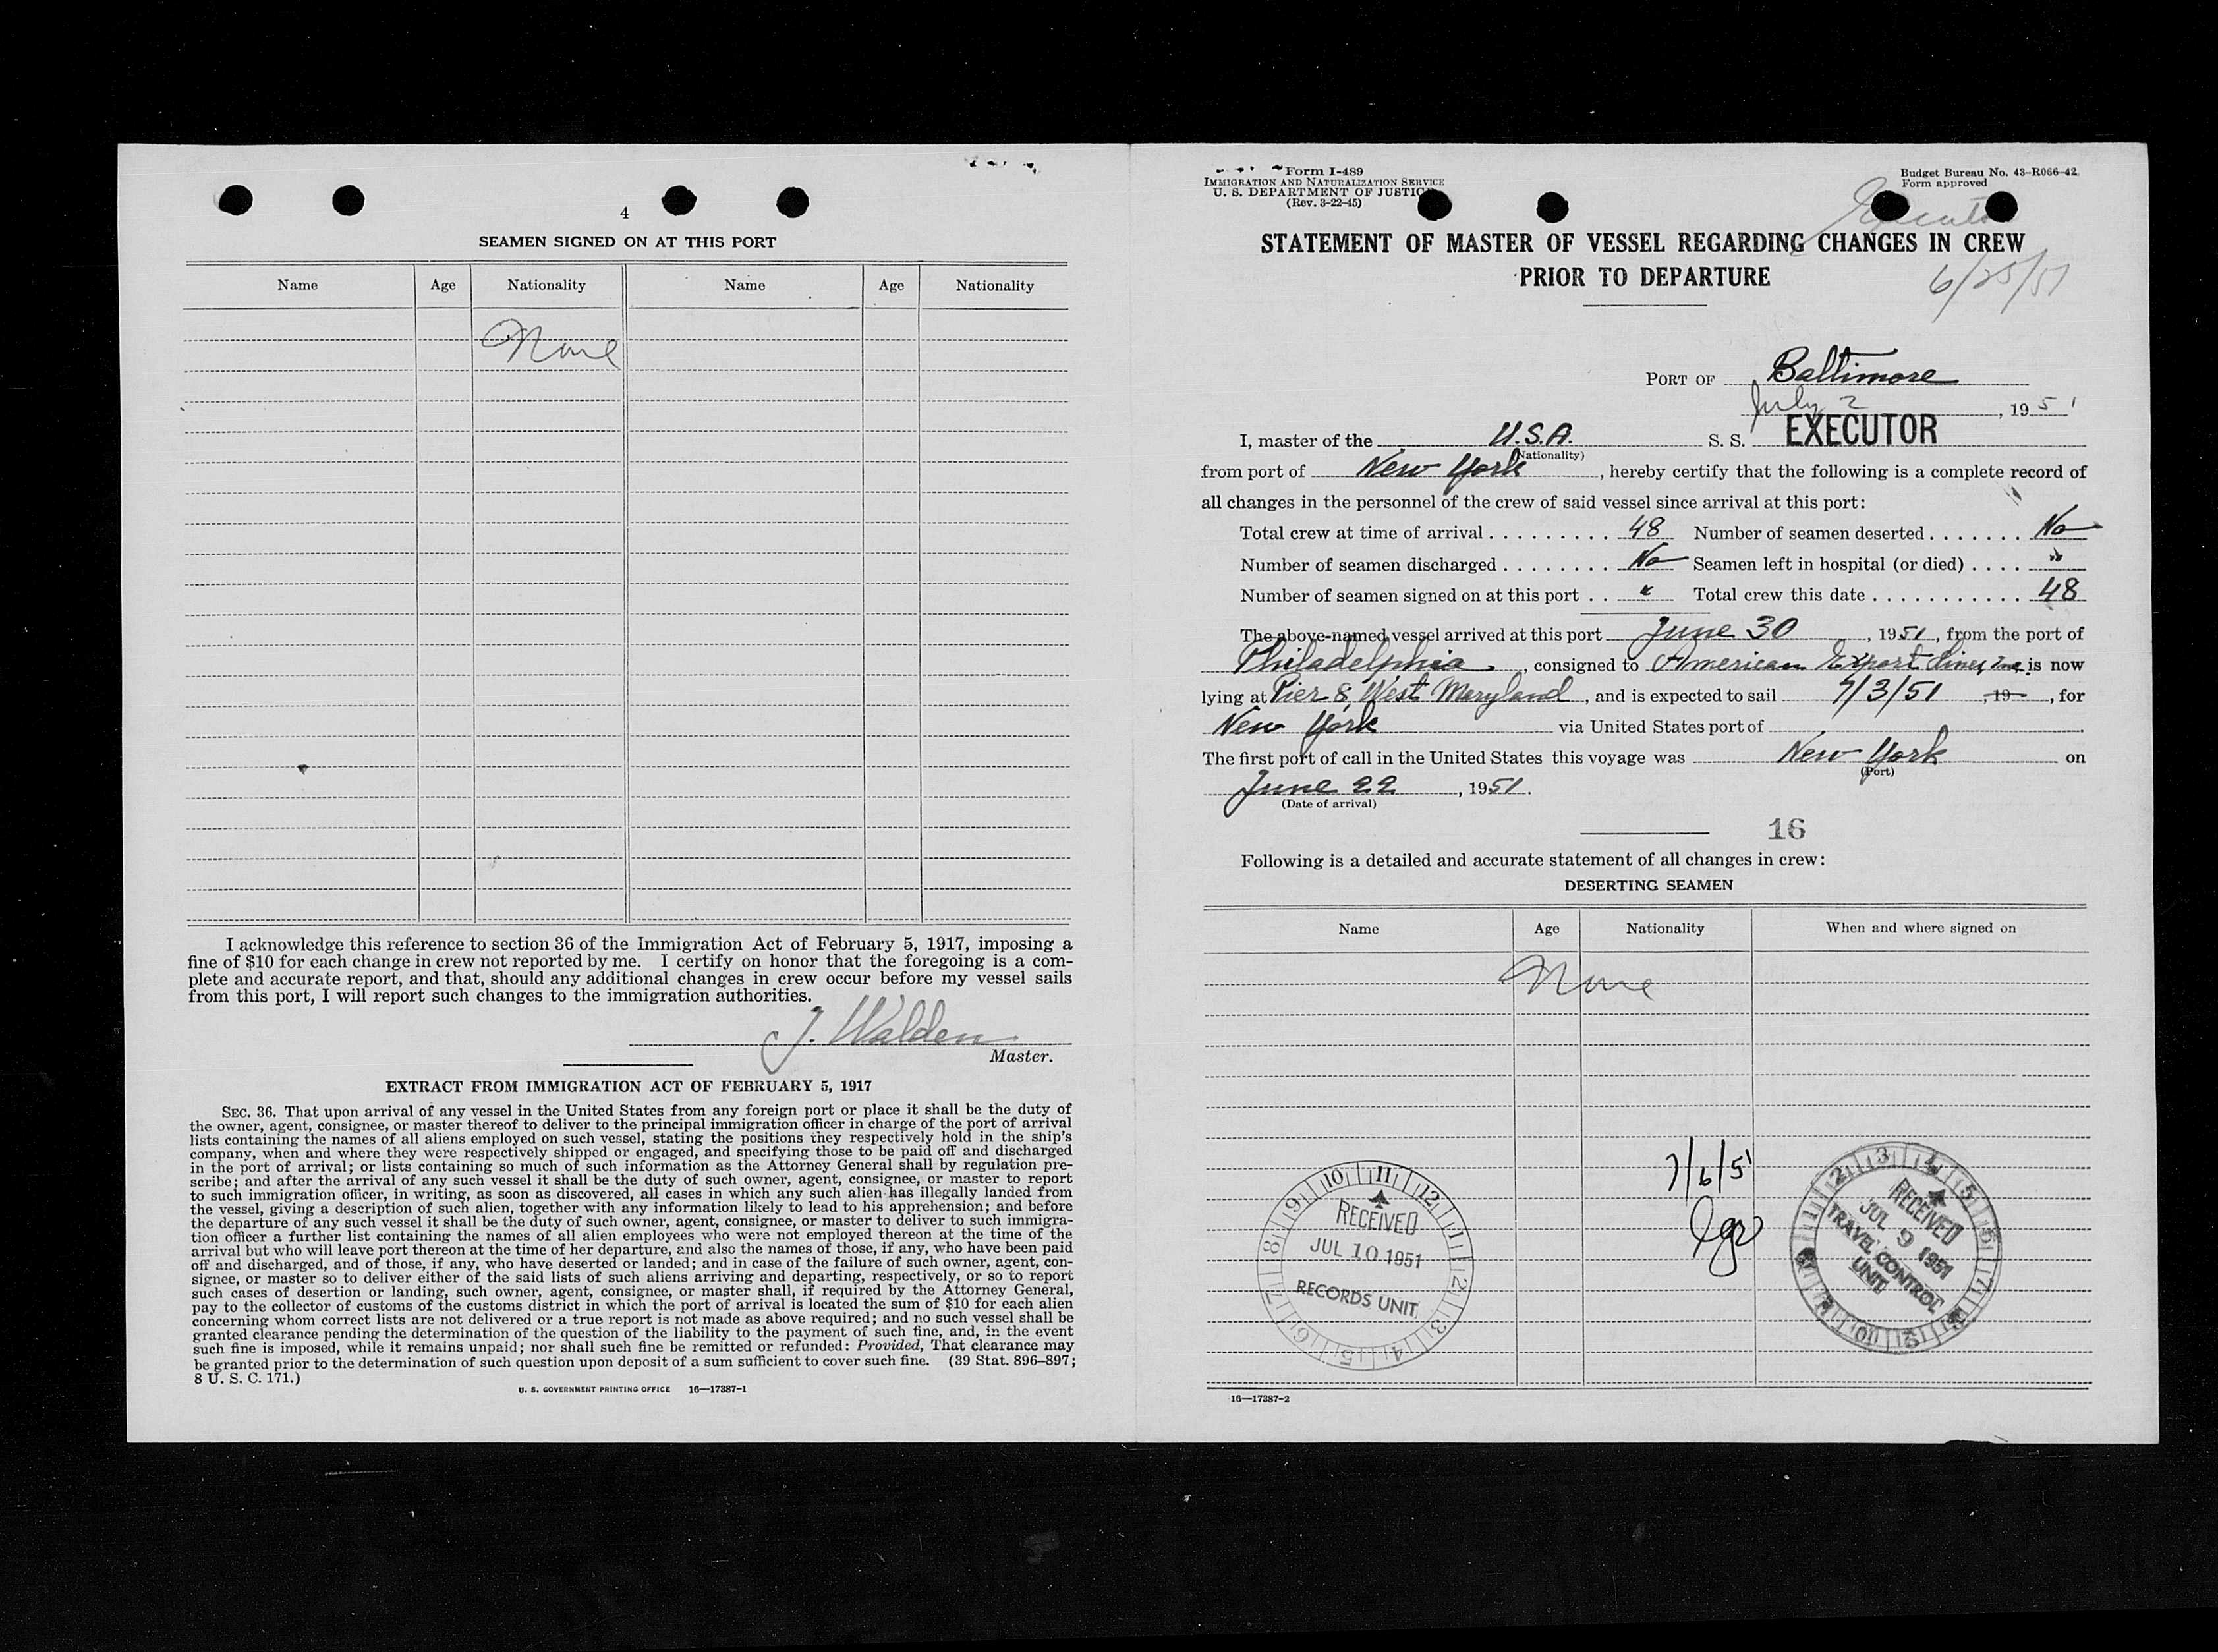 4
SEAMEN SIGNED ON AT THIS PORT
Name Age Nationality Name Age Nationality
None
I acknowledge this reference to section 36 of the Immigration Act of February 5, 1917, imposing a
fine of $10 for each change in crew not reported by me. I certify on honor that the foregoing is a com-
plete and accurate report, and that, should any additional changes in crew occur before my vessel sails
from this port, I will report such changes to the immigration authorities.
J. Walden
Master.
EXTRACT FROM IMMIGRATION ACT OF FEBRUARY 5, 1917
SEC. 36. That upon arrival of any vessel in the United States from any foreign port or place it shall be the duty of
the owner, agent, consignee, or master thereof to deliver to the principal immigration officer in charge of the port of arrival
lists containing the names of all aliens employed on such vessel, stating the positions they respectively hold in the ship's
company, when and where they were respectively shipped or engaged, and specifying those to be paid off and discharged
in the port of arrival; or lists containing so much of such information as the Attorney General shall by regulation pre-
scribe; and after the arrival of any such vessel it shall be the duty of such owner, agent, consignee, or master to report
to such immigration officer, in writing, as soon as discovered, all cases in which any such alien has illegally landed from
the vessel, giving a description of such alien, together with any information likely to lead to his apprehension; and before
the departure of any such vessel it shall be the duty of such owner, agent, consignee, or master to deliver to such immigra-
tion officer a further list containing the names of all alien employees who were not employed thereon at the time of the
arrival but who will leave port thereon at the time of her departure, and also the names of those, if any, who have been paid
off and discharged, and of those, if any, who have deserted or landed; and in case of the failure of such owner, agent, con-
signee, or master so to deliver either of the said lists of such aliens arriving and departing, respectively, or so to report
such cases of desertion or landing, such owner, agent, consignee, or master shall, if required by the Attorney General,
pay to the collector of customs of the customs district in which the port of arrival is located the sum of $10 for each alien
concerning whom correct lists are not delivered or a true report is not made as above required; and no such vessel shall be
granted clearance pending the determination of the question of the liability to the payment of such fine, and, in the event
such fine is imposed, while it remains unpaid; nor shall such fine be remitted or refunded: Provided, That clearance may
be granted prior to the determination of such question upon deposit of a sum sufficient to cover such fine. (39 Stat. 896–897;
8 U. S. C. 171.)
U. S. GOVERNMENT PRINTING OFFICE 16—17387-1
Form I-489
IMMIGRATION AND NATURALIZATION SERVICE
U. S. DEPARTMENT OF JUSTICE
(Rev. 3-22-45)
Budget Bureau No. 43-R066-42.
Form approved
Executor
STATEMENT OF MASTER OF VESSEL REGARDING CHANGES IN CREW
PRIOR TO DEPARTURE
6/25/51
PORT OF Baltimore
July 2, 1951
I, master of the U.S.A. S. S. EXECUTOR
(Nationality)
from port of New York, hereby certify that the following is a complete record of
all changes in the personnel of the crew of said vessel since arrival at this port:
Total crew at time of arrival . . . . . . . . . 48 Number of seamen deserted . . . . . . . No
Number of seamen discharged . . . . . . . . No Seamen left in hospital (or died) . . . . "
Number of seamen signed on at this port . . " Total crew this date . . . . . . . . . . . . 48
The above-named vessel arrived at this port June 30, 1951, from the port of
Philadelphia, consigned to American Export Lines, Inc. is now
lying at Pier 8, West Maryland, and is expected to sail 7/3/51, 19, for
New York via United States port of
The first port of call in the United States this voyage was New York on
(Port)
June 22, 1951.
(Date of arrival)
16
Following is a detailed and accurate statement of all changes in crew:
DESERTING SEAMEN
Name Age Nationality When and where signed on
None
7/6/51
RECEIVED
JUL 10 1951
RECORDS UNIT
RECEIVED
JUL 9 1951
TRAVEL CONTROL
UNIT
16—17387-2